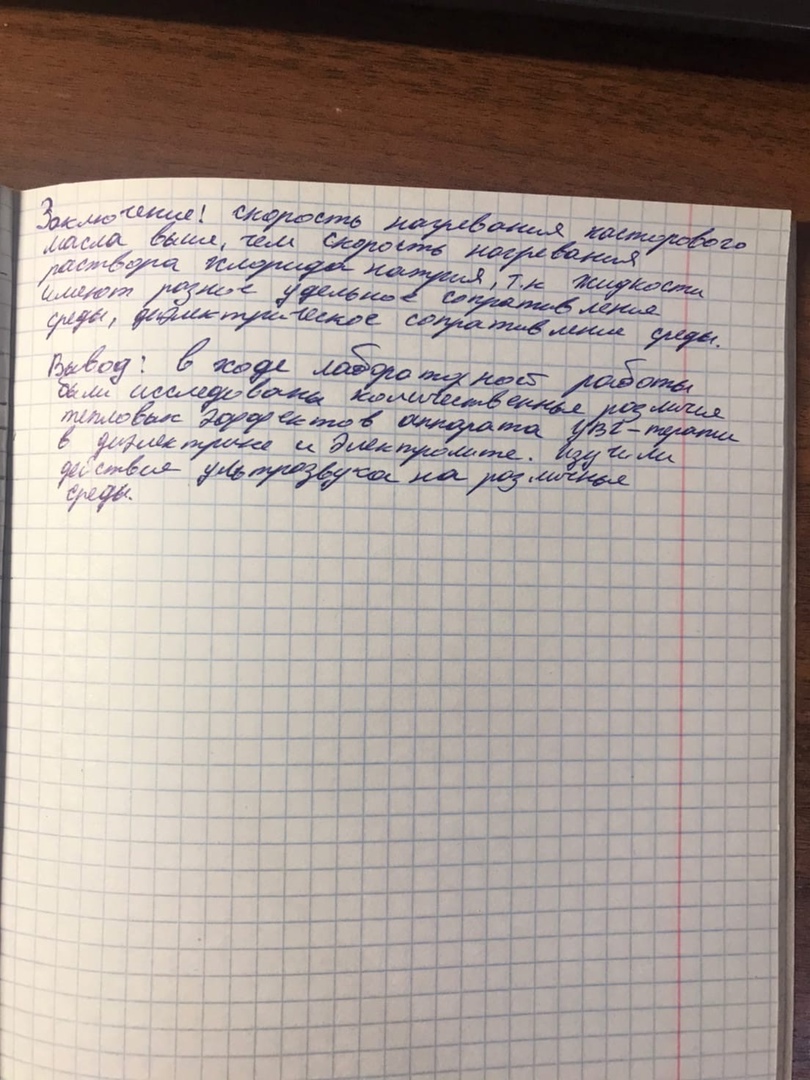 Заключение! скорость нагревания касторового
масла выше, чем скорость нагревания
раствора хлорида натрия, т.к жидкости
имеют разное удельное сопративление
среды, диэлектрическое сопративление среды.
Вывод: в ходе лабораторной работы
были исследованы количественные различия
тепловых эффектов аппарата УВЧ-терапи
в диэлектрике и электролите. изучили
действие ультрозвука на различные
среды.